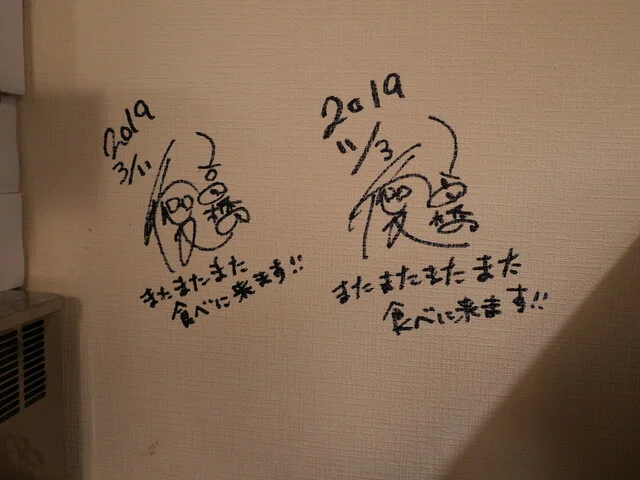 2019
3/11
高橋
優
またまたまた
食べに来ます!!
2019
11/3
高橋
優
またまたまたまた
食べに来ます!!